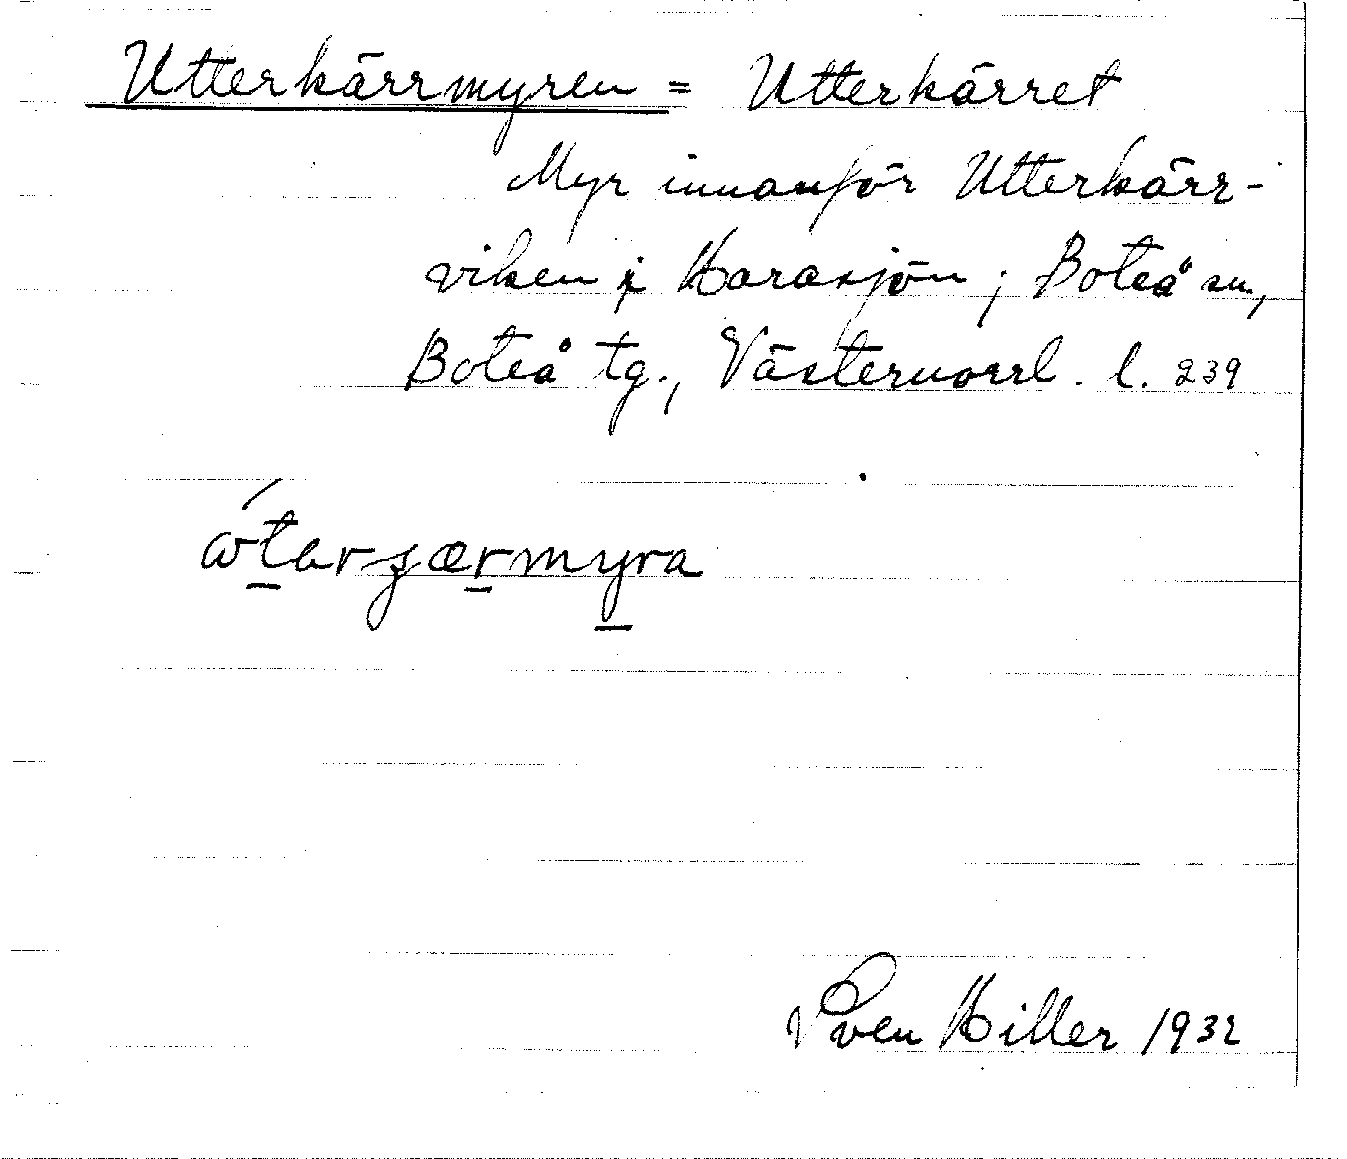 Utterkärrmyren = Utterkärret
Myr innanför Utterkärr-
viken i Harasjön; Boteå sn,
Boteå tg., Västernorrl. l. 239
Sven Hiller 1932